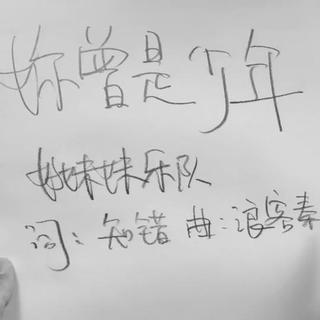 妳曾是少年
妹妹乐队
词：知错 曲：浪客秦